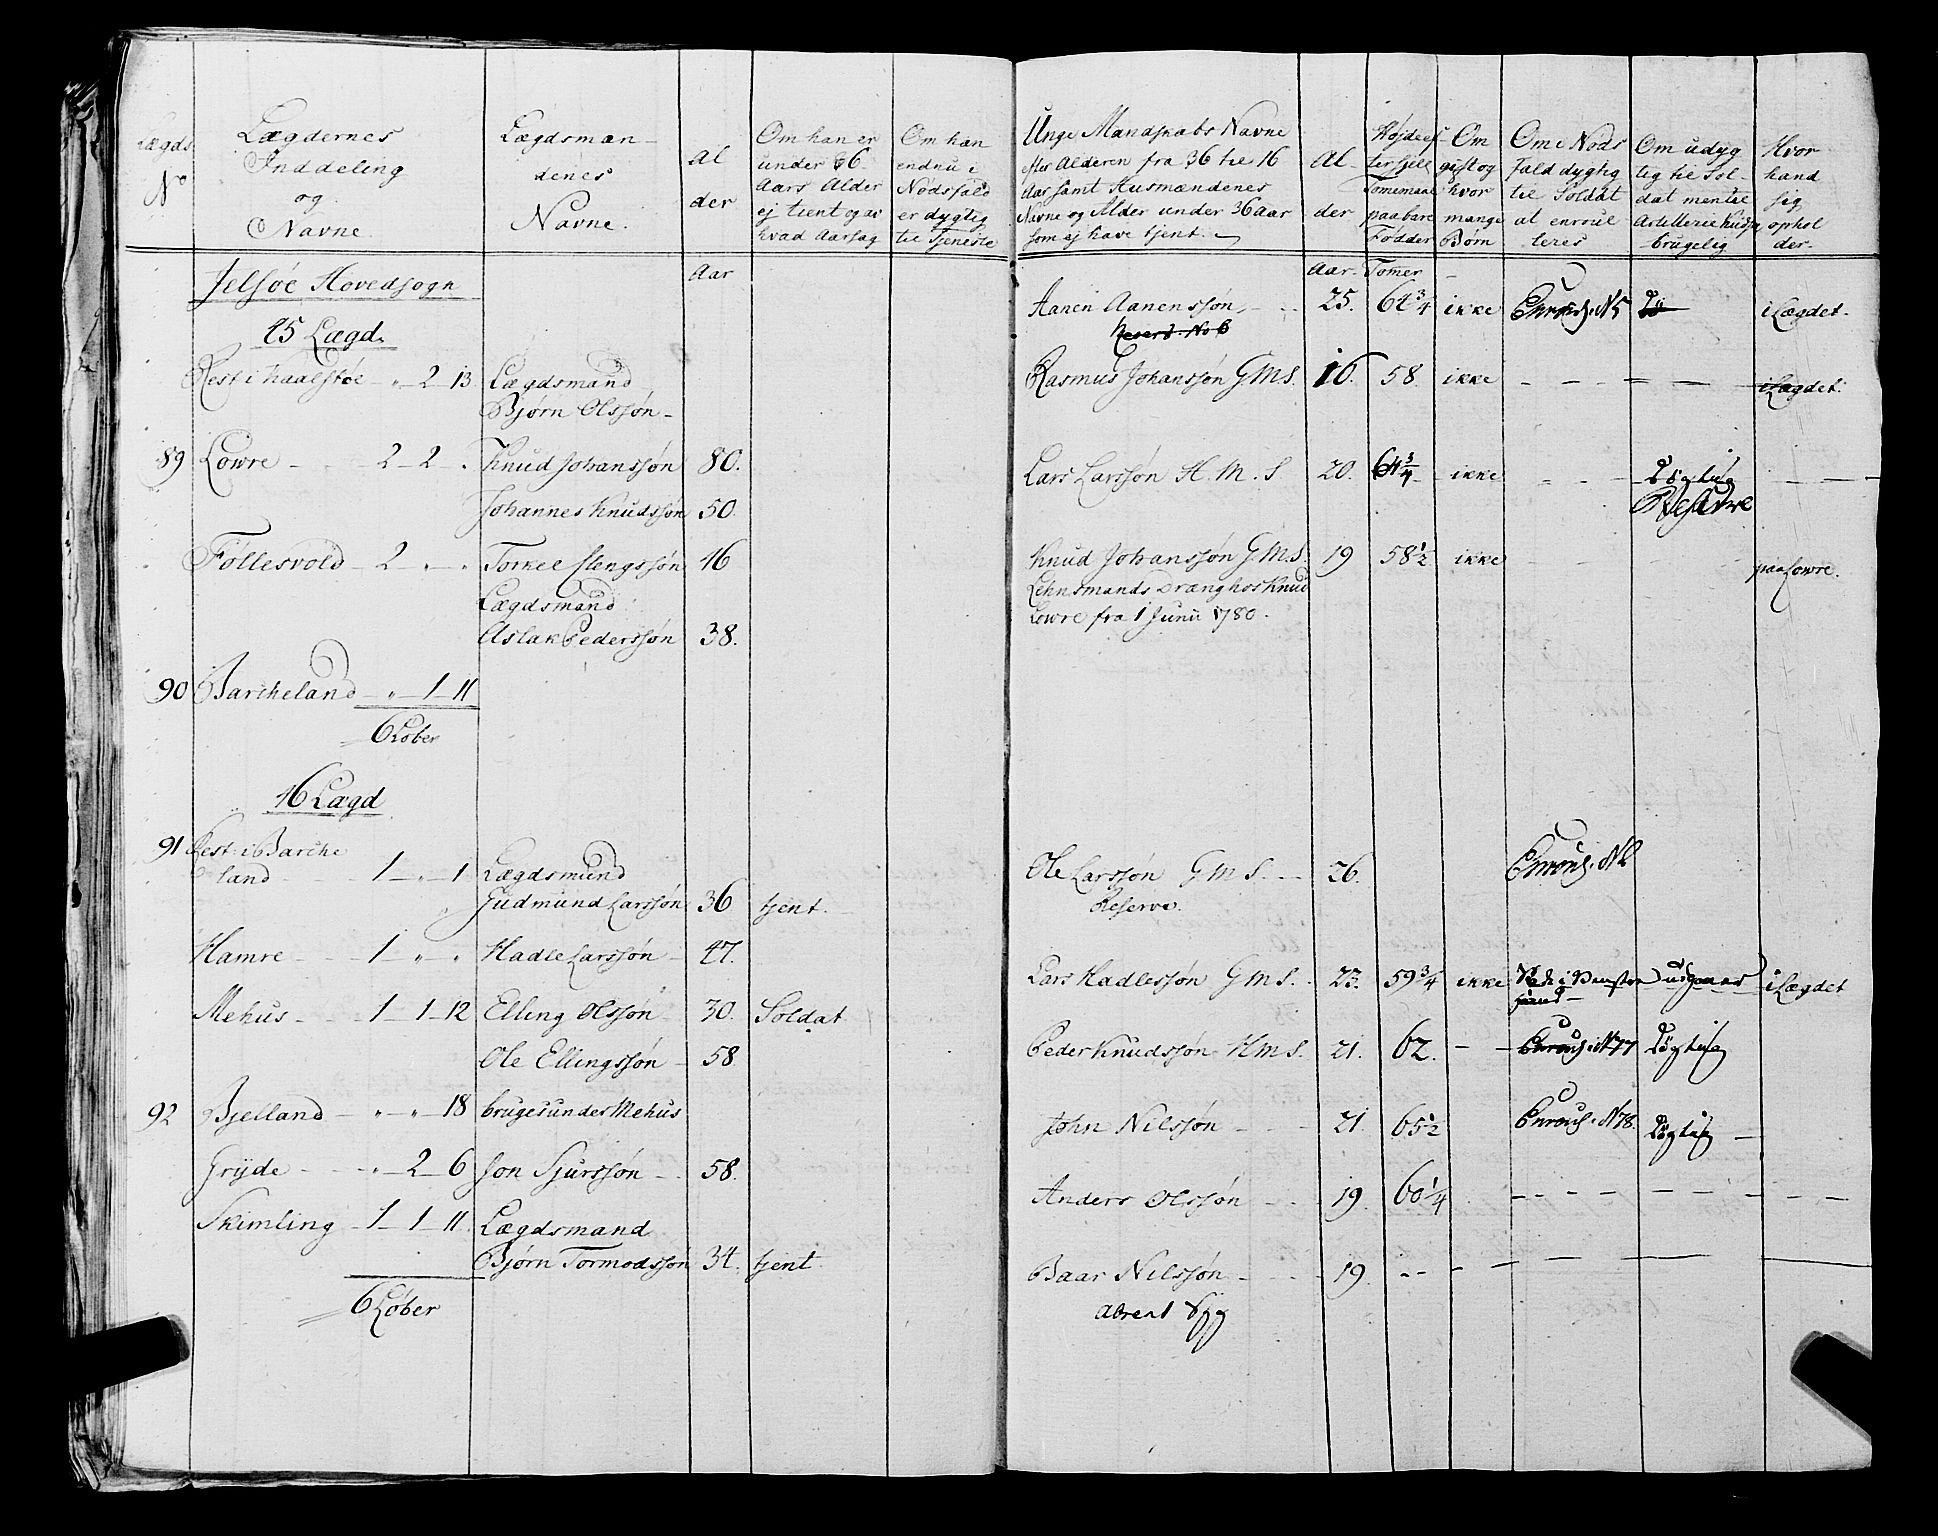 Lægds
No
Lægdernes
Inddeling
og
Navne.
Lægdsmæn-
denes
Navne.
Al
der
Om han er
under 66
Aars Alder
ej tient og av
hvad Aarsag
Om han
endnu i
Nødsfald
er dygtig
til Tjeneste
Jelsøe Hovedsogn
Aar
15 Lægd.
Rest i Haalstøe - „ - 2 - 13 Lægdsmand
Bjørn Olssøn -
89 Lowre - - 2 - 2 - „ Knud Johanssøn 80.
Johannes Knudssøn 50.
Føllesvold - 2 „ „ Torkel 46
Lægdsmand
Aslak Pederssøn 38.
90 Barkeland - „ - 1 - 11
6 Løber
16 Lægd
91 Rest i Barke
land - - 1 - „ - 1 Lægdsmand
Gudmund Larssøn 36 tjent.
Hamre - - 1 - „ „ Hadle Larssøn - 47.
Mehus - - 1 - 1 - 12 Elling Olssøn 30. Soldat
Ole Ellingssøn - 58
92 Bjelland - „ - „ - 18 bruges under Mehus
Grijde - - „ - 2 - 6 Jon Sjurssøn - 58.
Skimling - 1 - 1 - 11 Lægdsmand
Bjørn Tormodssøn 34. tjent
6 Løber
Unge Mandskabs Navne
efter Alderen fra 36 til 16
Aar samt Husmændenes
Navne og Alder under 36 Aar
som ej have tjent.
Al
der
Højde ef
ter Sjell
Tommemaal
paa bare
Fødder
Om
gift og
hvor
mange
Børn
Om i Nøds
fald dygtig
til Soldat
at enroul
leres
Om udyg
tig til Sol-
dat men til
Artillerie Kudsk
brugelig
Hvor
hand
sig
ophol
der.
Aar. Tomer
Aanen Aanenssøn - 25. 64 3/4 ikke Enroul. N5 i Lægdet.
Reserv. No 6
Rasmus Johanssøn G M S. 16. 58. ikke - - - i Lægdet.
Lars Larssøn H. M. S 20. 64 3/4 - ikke - - Dögtig
Reserve
Knud Johanssøn G M. S. 19 58 1/2 ikke - - paa Lowre.
Lehnsmands Dræng hos Knud
Lowre fra 1 Junii 1780.
Ole Larssøn G M S. - - 26.
Reserve.
Lars Hadlessøn G M S. 23. 59 3/4 ikke i Lægdet
Peder Knudssøn H M S. 21. 62. - - Enroul. N 77 Dögtig
John Nilssøn - - 21. 65 1/2 Enroul. N 78. Dögtig -
Anders Olssøn - - 19. 60 1/4 - - -
Baar Nilssøn - - - 19. - - -